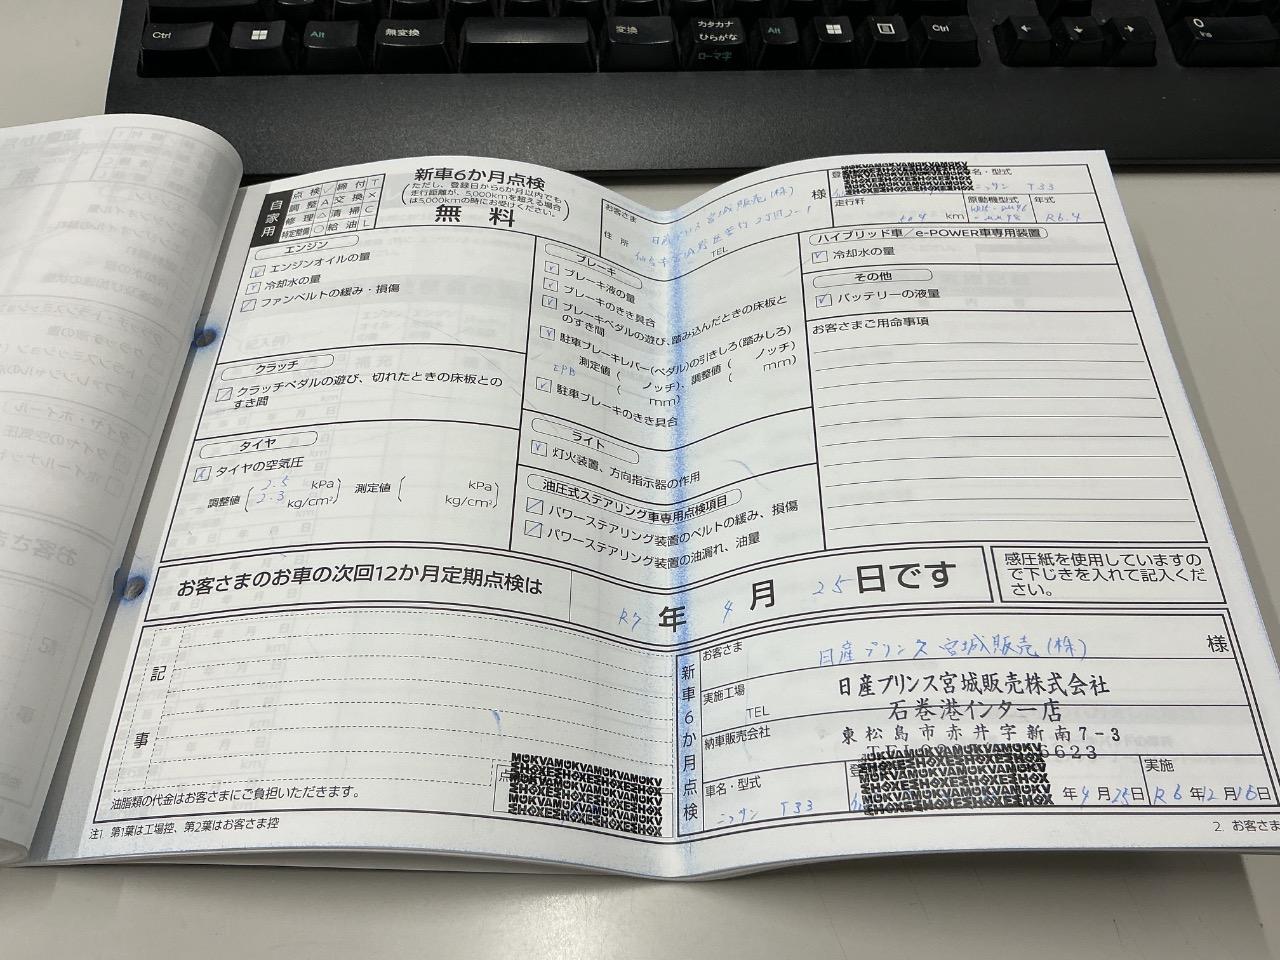 Ctrl
Alt
無変換
変換
カタカナ
ひらがな
ローマ字
Alt
Ctrl
0
Ins
自家用
点検 レ 締付 T
調整 A 交換 X
修理 △ 清掃 C
特定整備 ○ 給油 L
新車6か月点検
(ただし、登録日から6か月以内でも
走行距離が、5,000kmを超える場合
は5,000kmの時にお受けください。)
無料
お客さま
日産プリンス宮城販売(株) 様
住所
TEL
名・型式
ニッサン T33
走行粁
km
原動機型式
年式
R6.4
エンジン
エンジンオイルの量
冷却水の量
ファンベルトの緩み・損傷
クラッチ
クラッチペダルの遊び、切れたときの床板との
すき間
タイヤ
タイヤの空気圧
調整値 ( 2.5 kPa
2.3 kg/cm²) 測定値 ( kPa
kg/cm²)
ブレーキ
ブレーキ液の量
ブレーキのきき具合
ブレーキペダルの遊び、踏み込んだときの床板と
のすき間
駐車ブレーキレバー(ペダル)の引きしろ(踏みしろ)
測定値 ( ノッチ)、調整値 ( ノッチ)
EPB ( mm) ( mm)
駐車ブレーキのきき具合
ライト
灯火装置、方向指示器の作用
油圧式ステアリング車専用点検項目
パワーステアリング装置のベルトの緩み、損傷
パワーステアリング装置の油漏れ、油量
ハイブリッド車/e-POWER車専用装置
冷却水の量
その他
バッテリーの液量
お客さまご用命事項
お客さまのお車の次回12か月定期点検は
R7 年 4 月 25 日です
感圧紙を使用していますの
で下じきを入れて記入くだ
さい。
記事
油脂類の代金はお客さまにご負担いただきます。
注1. 第1葉は工場控、第2葉はお客さま控
新車6か月点検
お客さま
日産プリンス宮城販売(株) 様
実施工場
TEL
日産プリンス宮城販売株式会社
石巻港インター店
納車販売会社
東松島市赤井字新南7-3
6623
車名・型式
ニッサン T33
年4月25日
実施
R6年12月16日
2. お客さま